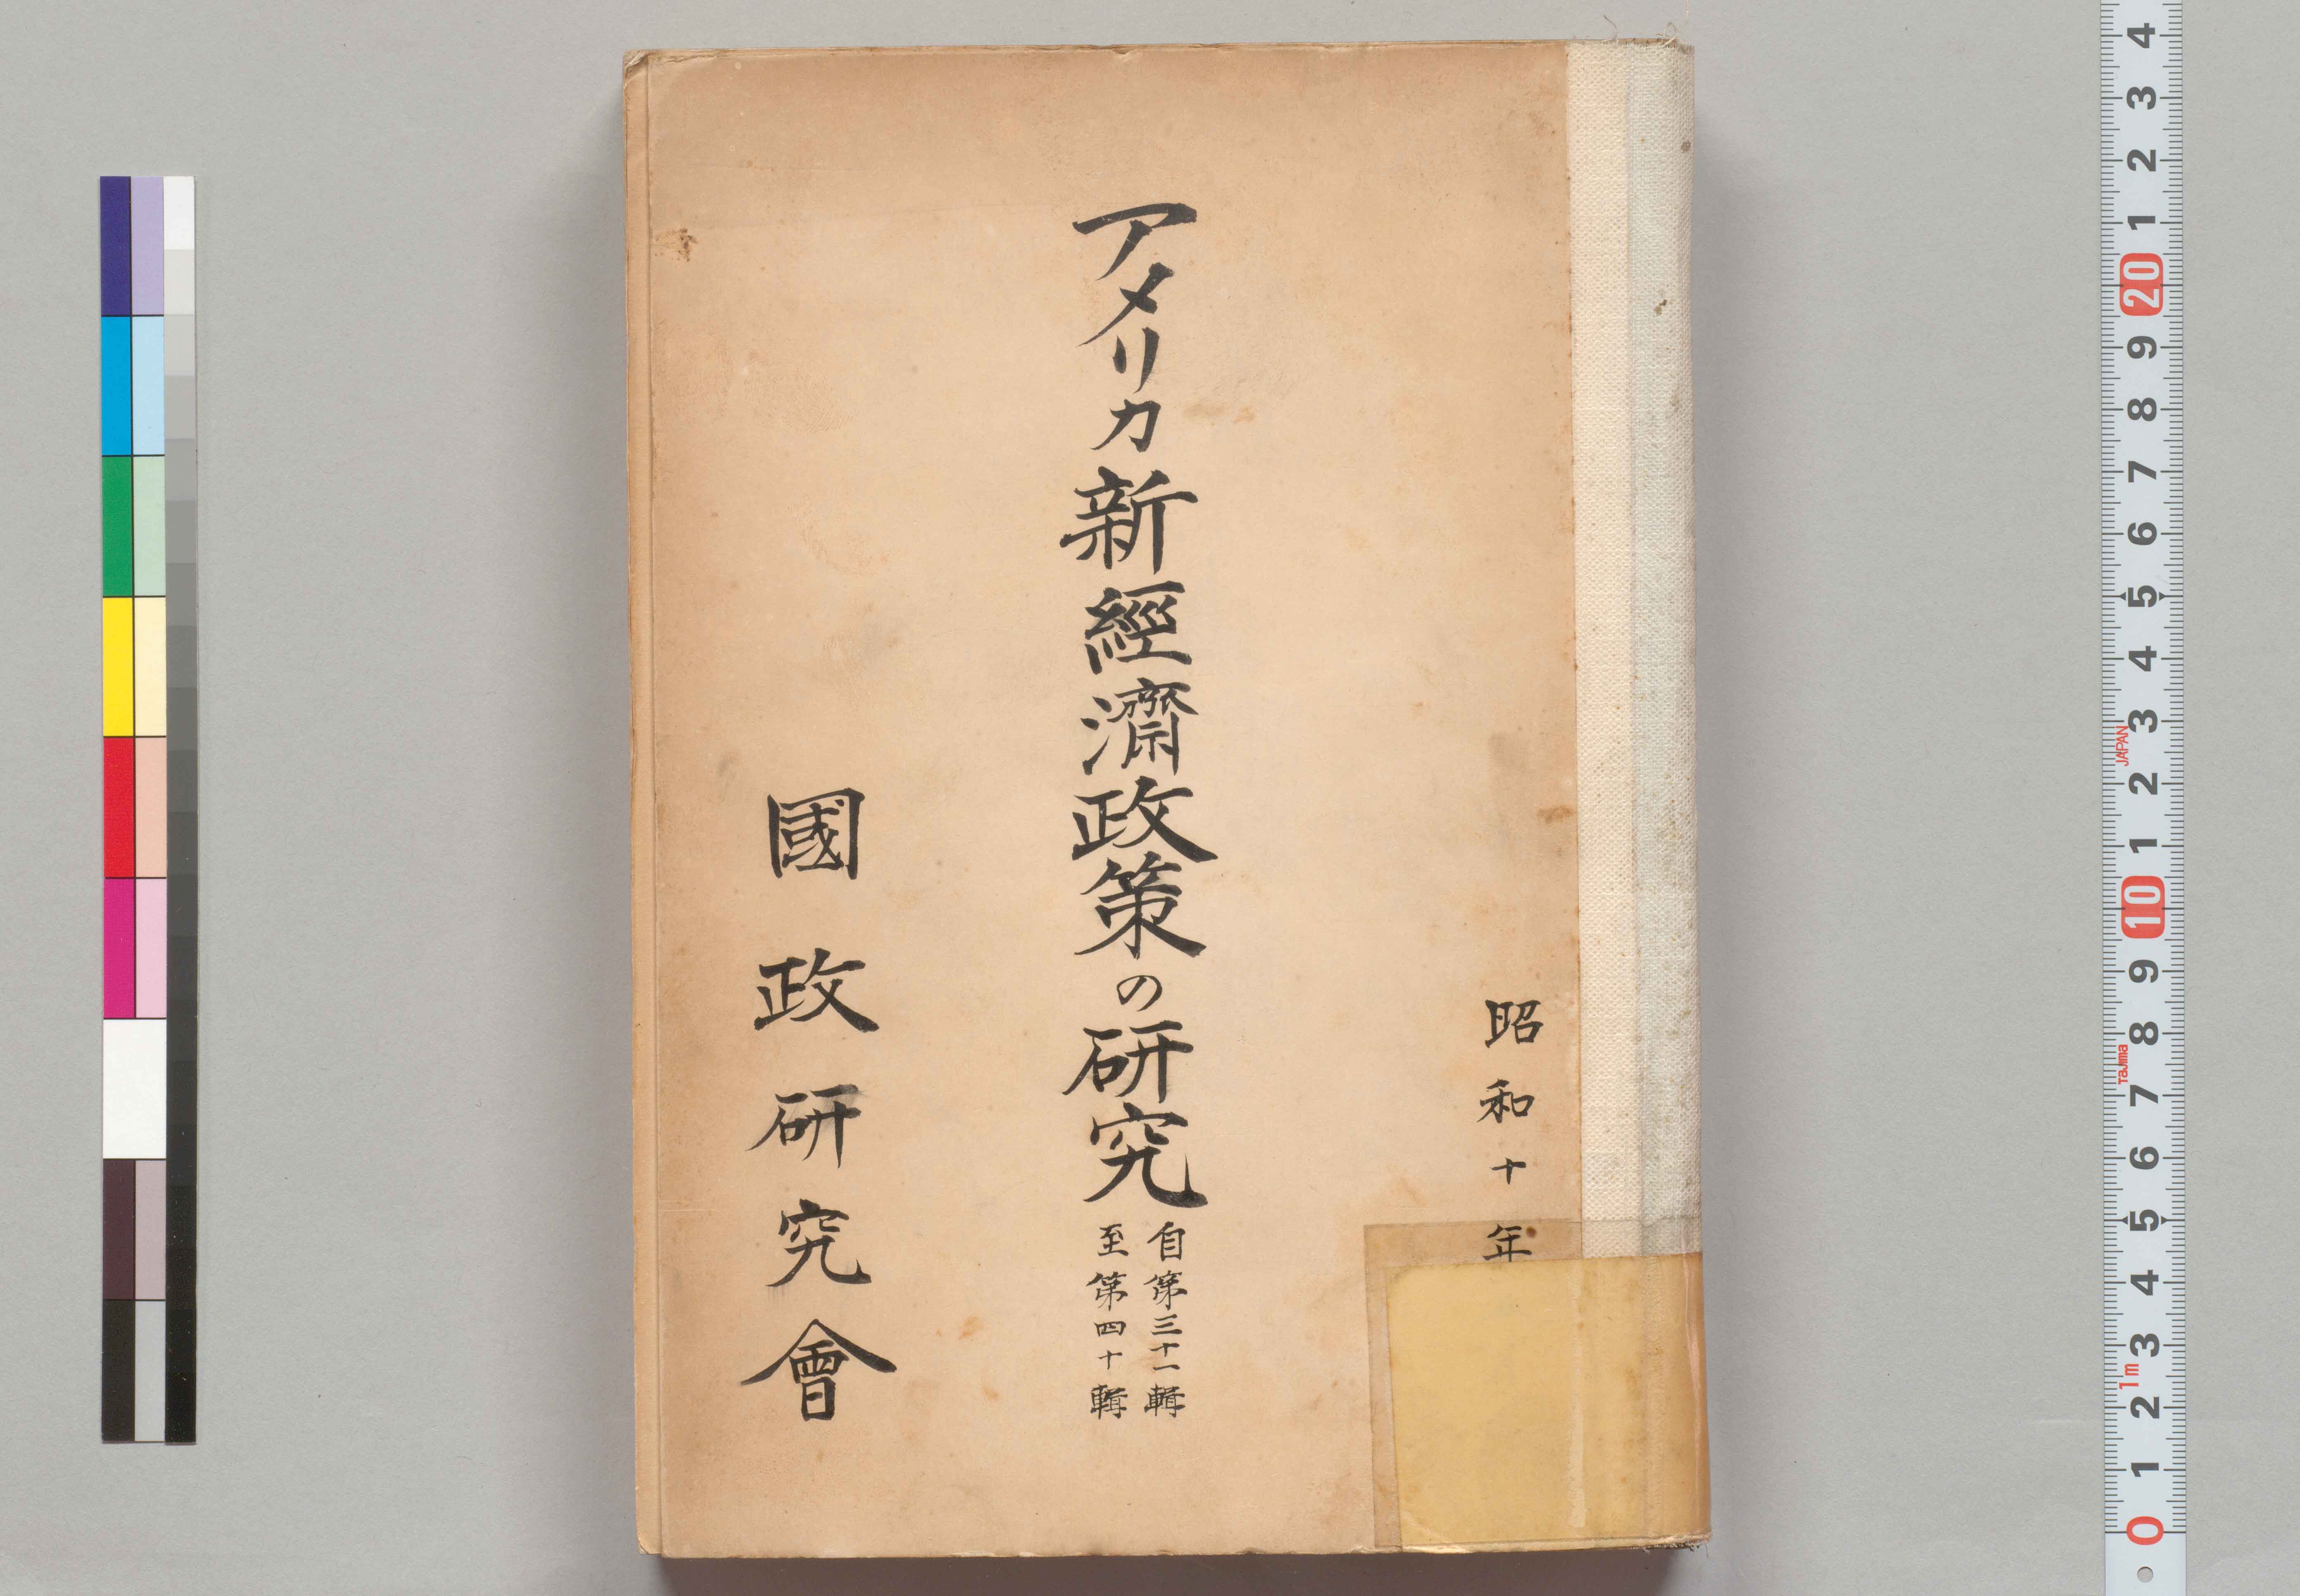 昭和十年
アメリカ新經濟政策の研究
自第三十一輯
至第四十輯
國政研究會
4
3
2
1
20
9
8
7
6
5
4
3
JAPAN
2
1
10
9
8
Tajima
7
6
5
4
3
1m
2
1
0